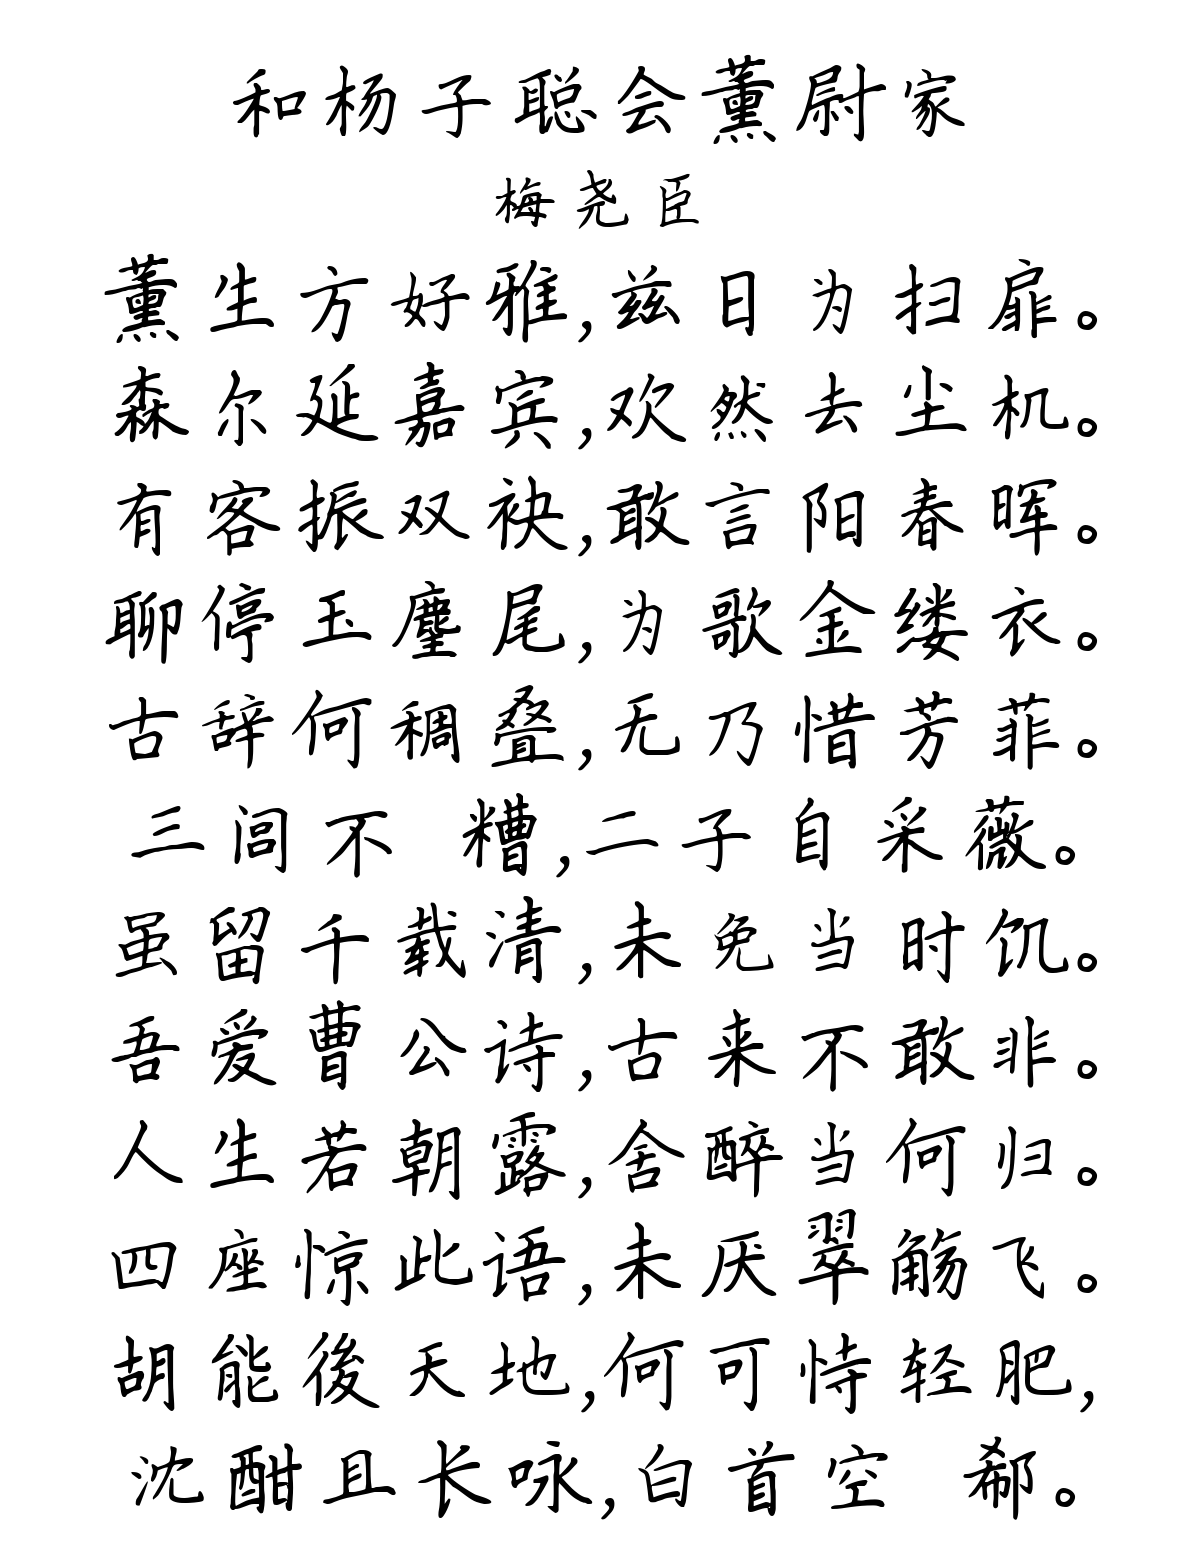 和杨子聪会薰尉家
梅尧臣
薰生方好雅,兹日为扫扉。
森尔延嘉宾,欢然去尘机。
有客振双袂,敢言阳春晖。
聊停玉麈尾,为歌金缕衣。
古辞何稠叠,无乃惜芳菲。
三闾不 糟,二子自采薇。
虽留千载清,未免当时饥。
吾爱曹公诗,古来不敢非。
人生若朝露,舍醉当何归。
四座惊此语,未厌翠觞飞。
胡能後天地,何可恃轻肥,
沈酣且长咏,白首空 郗。